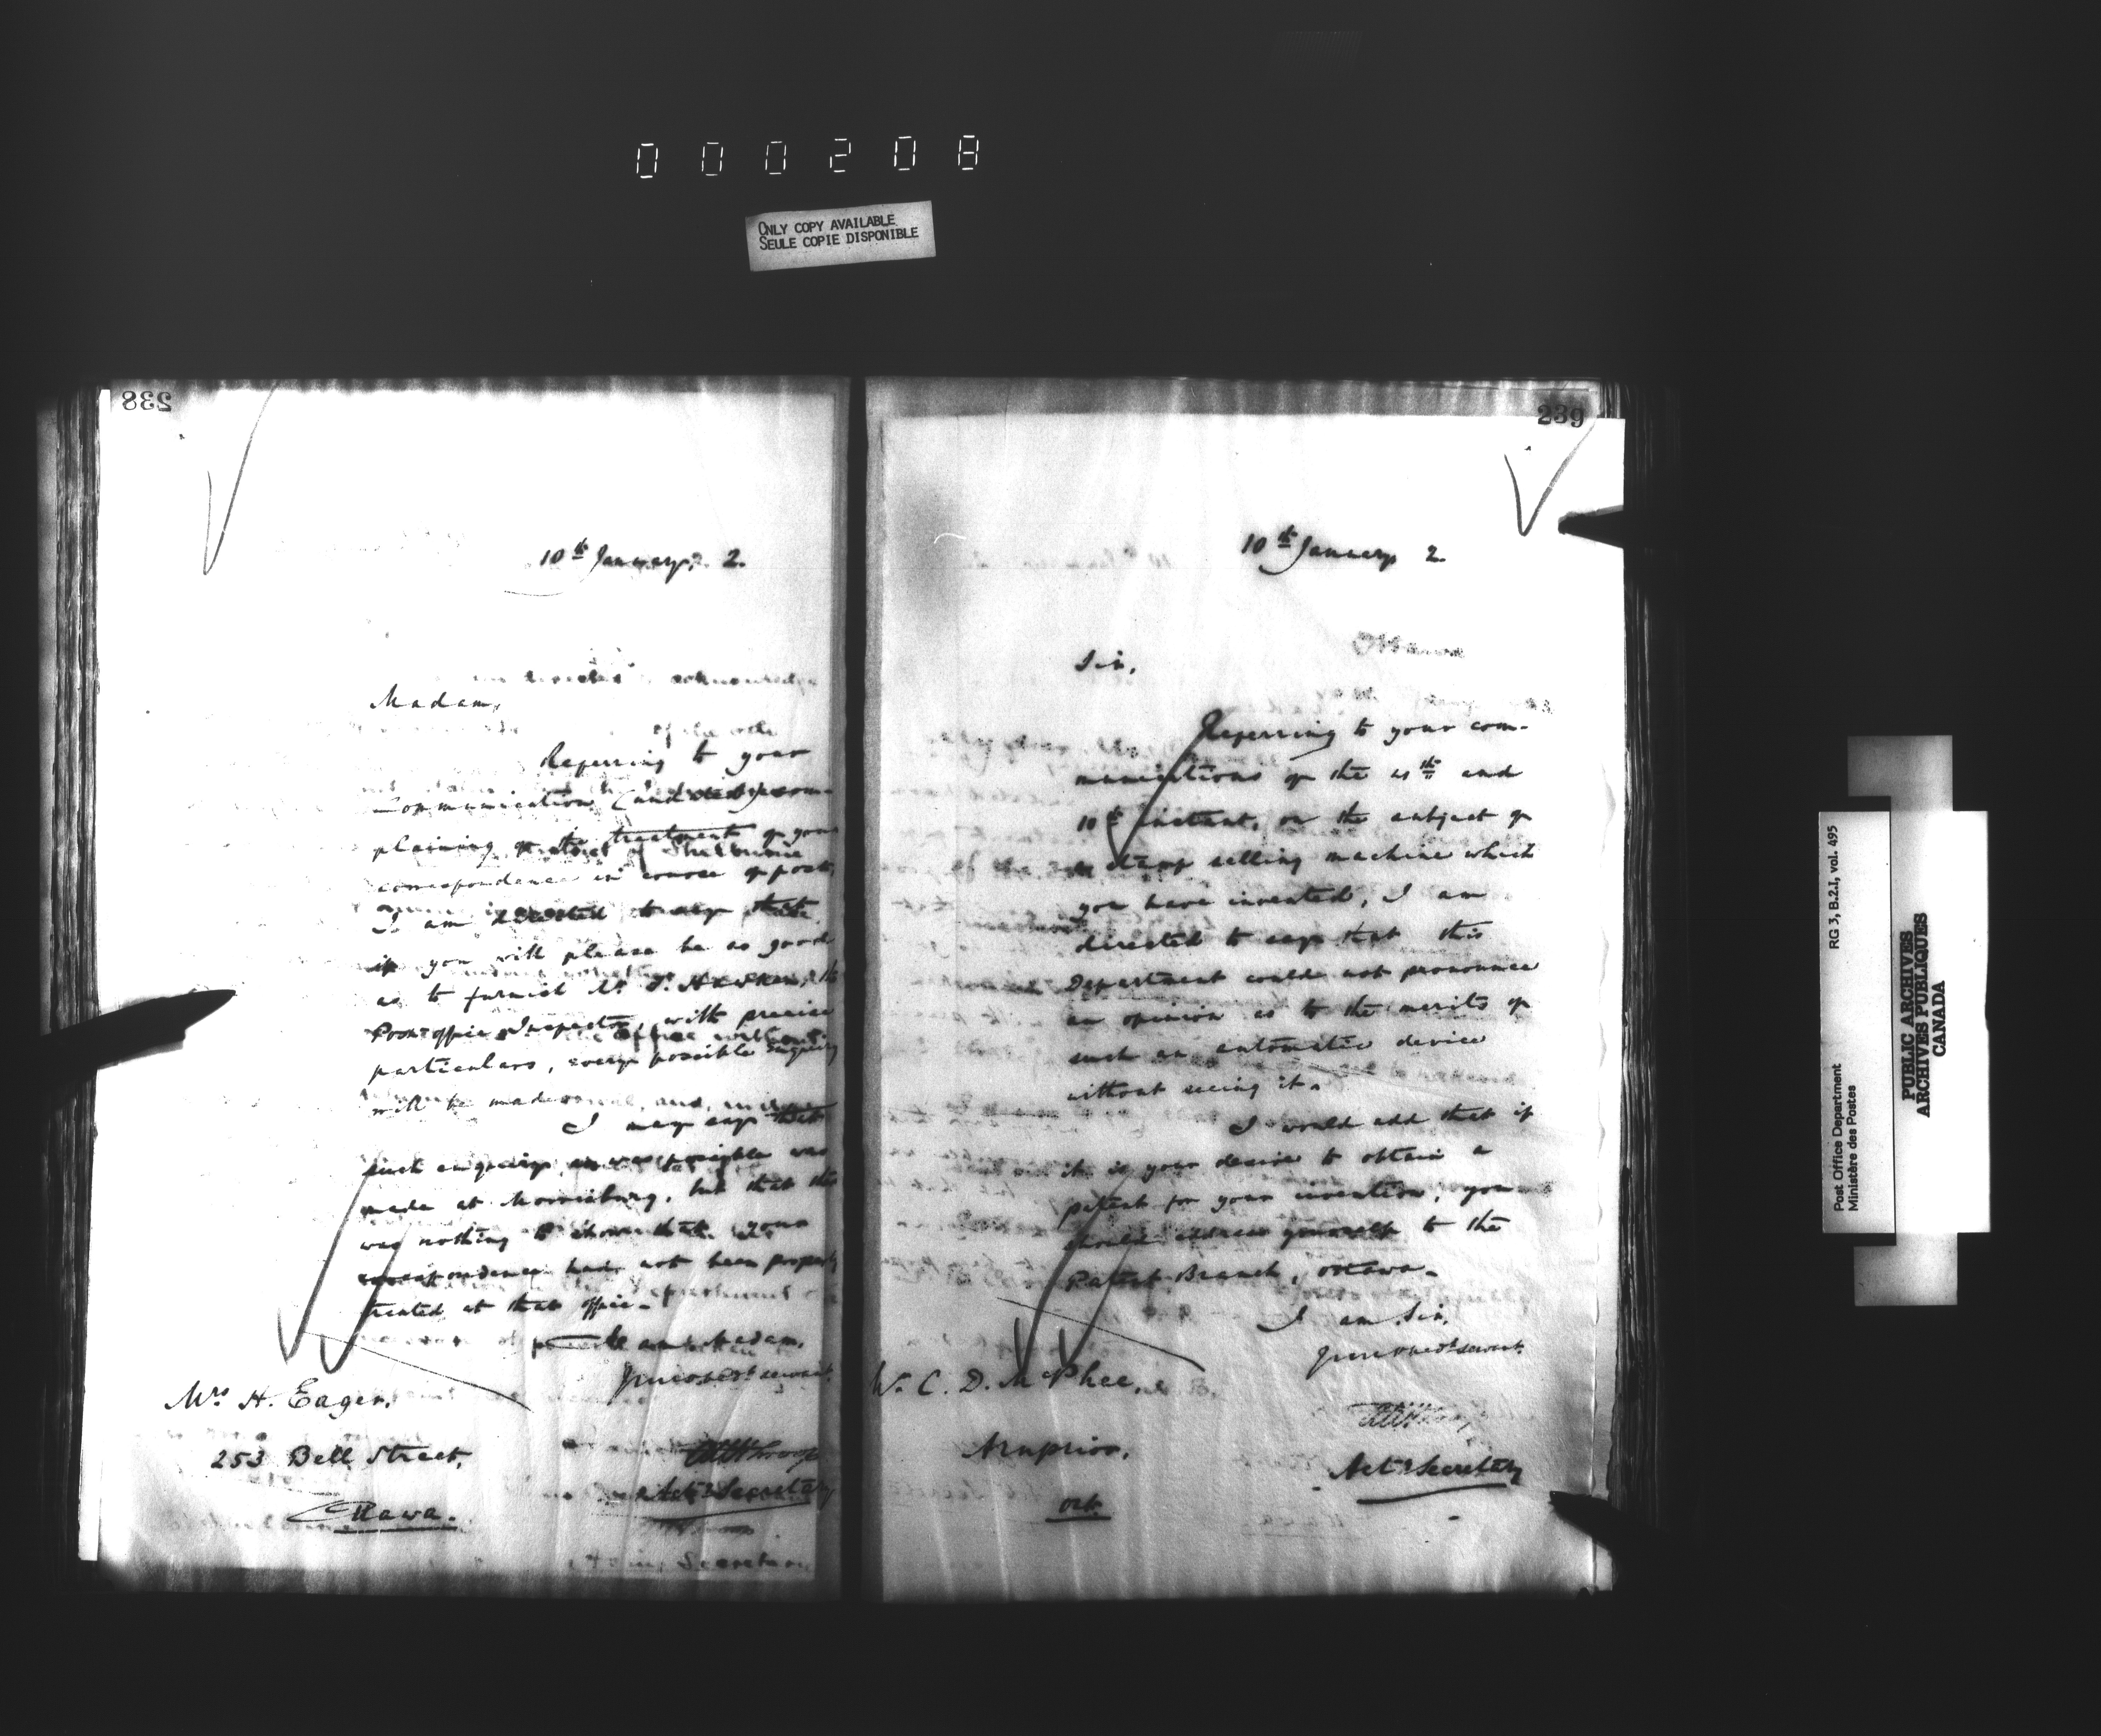 000208
ONLY COPY AVAILABLE
SEULE COPIE DISPONIBLE
238
10th January, 2.
Madam,
Referring to your
communication (undated) com-
plaining of the treatment of your
correspondence in course of post,
I am directed to say that
if you will please be so good
as to furnish Mr. T. Hawken, the
Post office Inspector, with precise
particulars, every possible enquiry
will be made.
I may say that
such enquiry as was possible was
made at Morrisburg, but that there
was nothing to show that your
correspondence had not been properly
treated at that office.
I am, Madam,
Your obedt servant.
Actg Secretary
Mrs H. Eager,
253 Bell Street,
Ottawa.
239
10th January 2.
Sir,
Referring to your com-
munications of the 4th and
10th instant, on the subject of
a stamp selling machine which
you have invented, I am
directed to say that this
Department could not pronounce
an opinion as to the merits of
such an automatic device
without seeing it.
I would add that if
it is your desire to obtain a
patent for your invention, you
should address yourself to the
Patent Branch, Ottawa.
I am, Sir,
Your obedt servant.
Actg Secretary
C. D. McPhee,
Arnprior,
Ont.
Post Office Department
Ministère des Postes
RG 3, B.2.I, vol. 495
PUBLIC ARCHIVES
ARCHIVES PUBLIQUES
CANADA